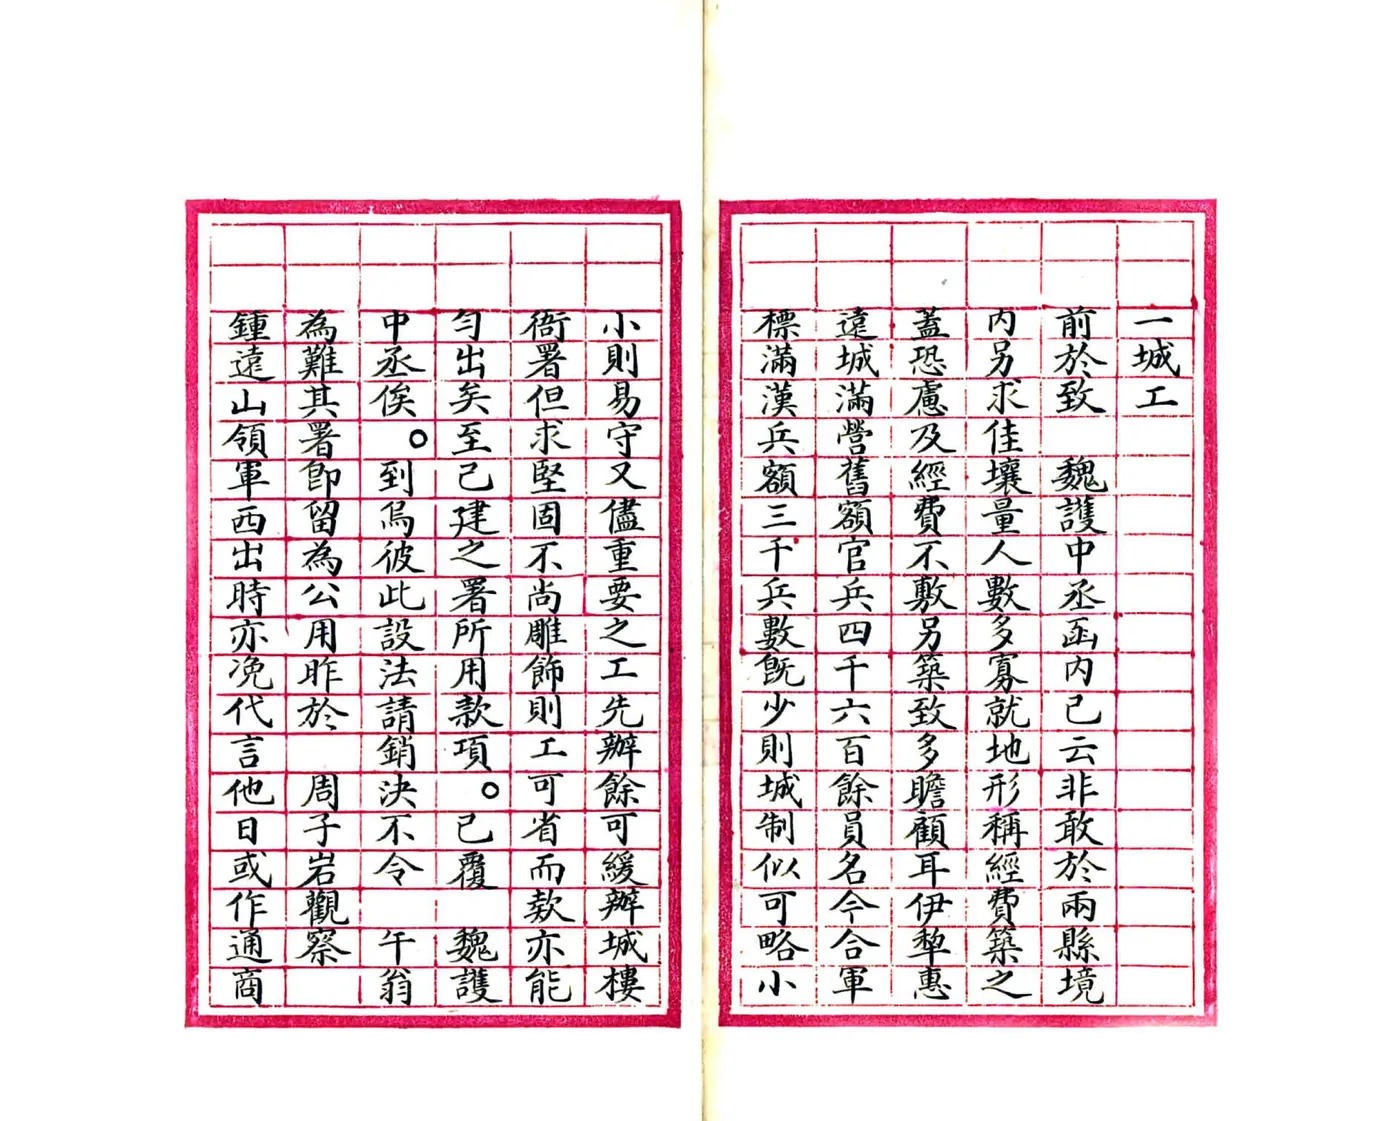 一城工
前於致　魏護中丞函內已云非敢於兩縣境
內另求佳壤量人數多寡就地形稱經費築之
蓋恐慮及經費不敷另築致多瞻顧耳伊犂惠
遠城滿營舊額官兵四千六百餘員名今合軍
標滿漢兵額三千兵數旣少則城制似可略小
小則易守又儘重要之工先辦餘可緩辦城樓
衙署但求堅固不尚雕飾則工可省而款亦能
勻出矣至已建之署所用款項。已覆　魏護
中丞俟。到烏彼此設法請銷決不令　午翁
為難其署卽留為公用昨於　周子岩觀察
鍾遠山領軍西出時亦浼代言他日或作通商